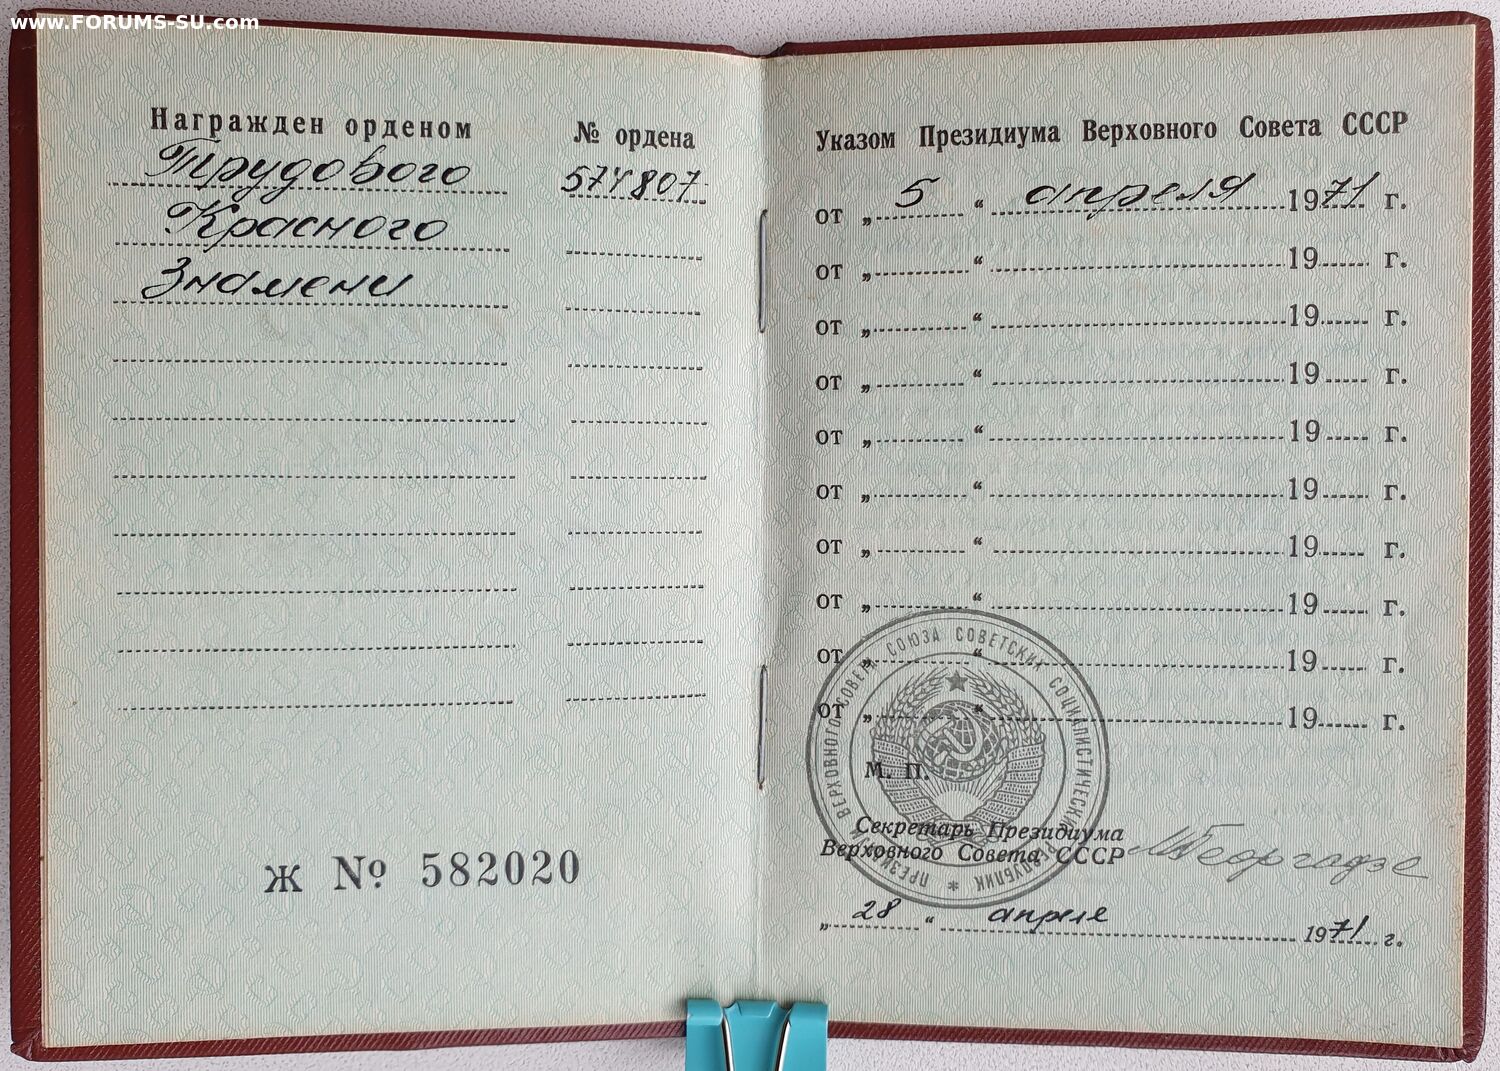 www.FORUMS-SU.com
Награжден орденом
№ ордена
Трудового
574807
Красного
Знамени
Ж № 582020
Указом Президиума Верховного Совета СССР
от „ 5 “ апреля 1971 г.
от „ “ 19 г.
от „ “ 19 г.
от „ “ 19 г.
от „ “ 19 г.
от „ “ 19 г.
от „ “ 19 г.
от „ “ 19 г.
от „ “ 19 г.
от „ “ 19 г.
ПРЕЗИДИУМ ВЕРХОВНОГО СОВЕТА СОЮЗА СОВЕТСКИХ СОЦИАЛИСТИЧЕСКИХ РЕСПУБЛИК
М. П.
Секретарь Президиума
Верховного Совета СССР
МГеоргадзе
„ 28 “ апреля 1971 г.